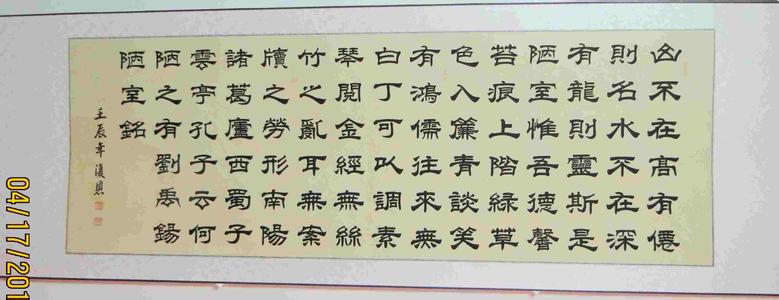 山不在高有僊
則名水不在深
有龍則靈斯是
陋室惟吾德馨
苔痕上階綠草
色入簾青談笑
有鴻儒往來無
白丁可以調素
琴閱金經無絲
竹之亂耳無案
牘之勞形南陽
諸葛廬西蜀子
雲亭孔子云何
陋之有劉禹錫
陋室銘
壬辰年復恩
04/17/201